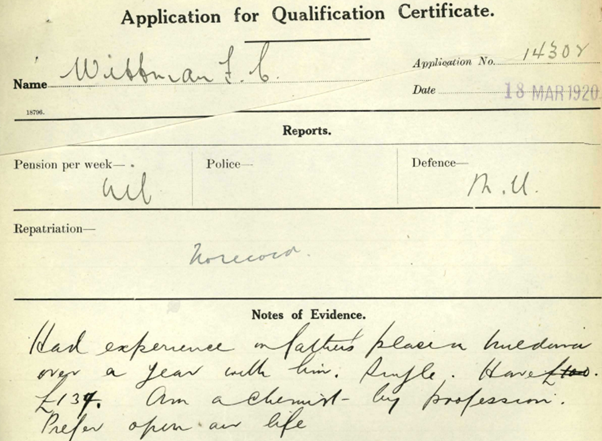 Application for Qualification Certificate.
Name Wittman F. C.
Application No. 14302
Date 18 MAR 1920
18796.
Reports.
Pension per week— Nil
Police—
Defence— M.U.
Repatriation—
No record.
Notes of Evidence.
Had experience on father's place
over a year with him. Single. Have £100.
£134. Am a chemist by profession.
Prefer open air life